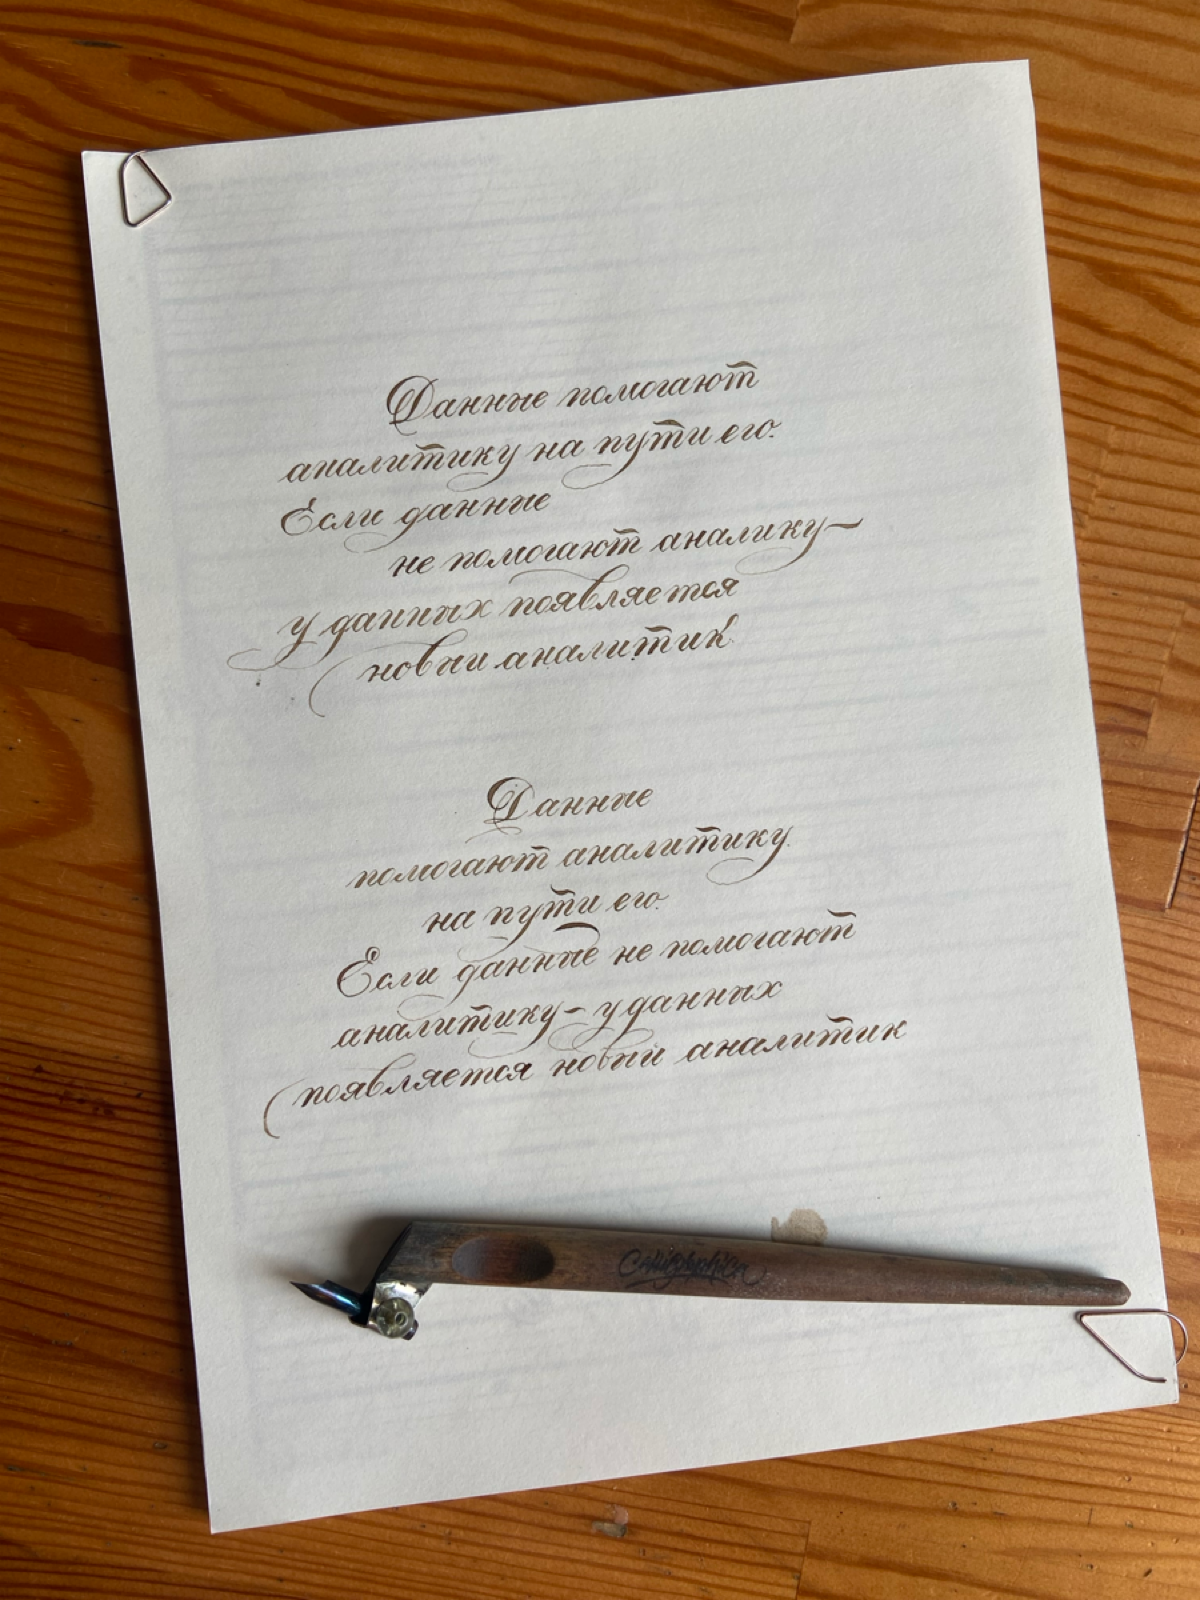 Данные помогают
аналитику на пути его.
Если данные
не помогают аналику –
у данных появляется
новый аналитик.
Данные
помогают аналитику
на пути его.
Если данные не помогают
аналитику – у данных
появляется новый аналитик
Calligraphica